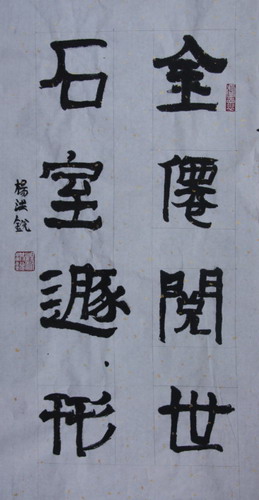 金僊閱世
石室遯形
楊洪銳